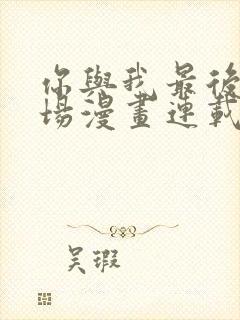 你與我最後
場漫畫連載
吴瑕